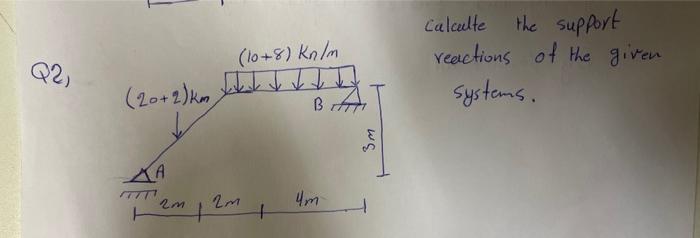 Calculte the support
reactions of the given
systems.
Q2,
(10+8) Kn/m
(20+2)km
B
A
3m
2m 2m 4m